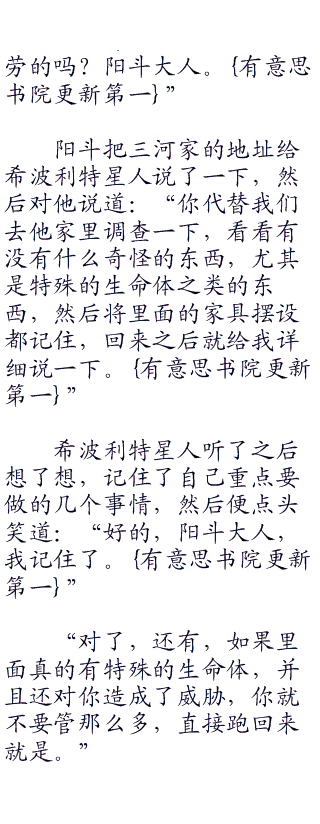 劳的吗？阳斗大人。{有意思
书院更新第一}”
阳斗把三河家的地址给
希波利特星人说了一下，然
后对他说道：“你代替我们
去他家里调查一下，看看有
没有什么奇怪的东西，尤其
是特殊的生命体之类的东
西，然后将里面的家具摆设
都记住，回来之后就给我详
细说一下。{有意思书院更新
第一}”
希波利特星人听了之后
想了想，记住了自己重点要
做的几个事情，然后便点头
笑道：“好的，阳斗大人，
我记住了。{有意思书院更新
第一}”
“对了，还有，如果里
面真的有特殊的生命体，并
且还对你造成了威胁，你就
不要管那么多，直接跑回来
就是。”